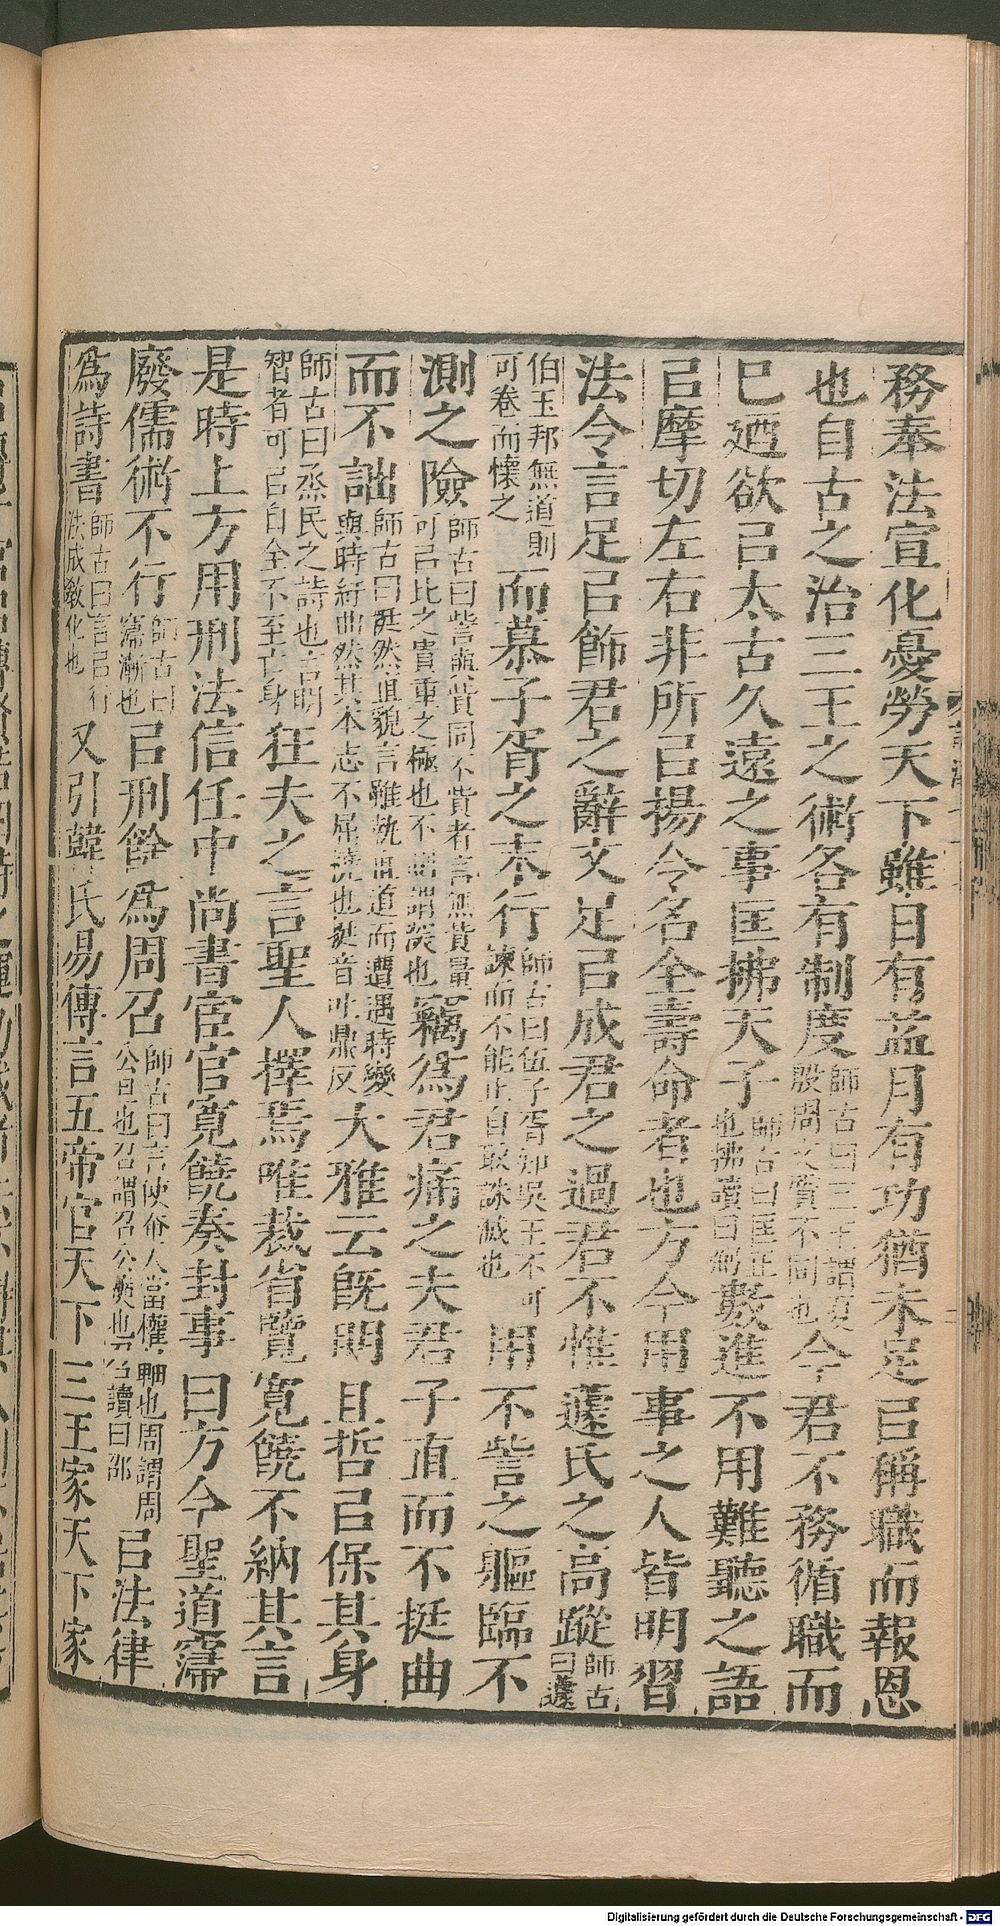 務奉法宣化憂勞天下雖日有益月有功猶未足㠯稱職而報恩
也自古之治三王之術各有制度師古曰三王謂夏殷周文質不同也今君不務循職而
巳迺欲㠯太古久遠之事匡拂天子師古曰匡正也拂讀曰弼數進不用難聽之語
㠯摩切左右非所㠯揚令名全壽命者也方今用事之人皆明習
法令言足㠯飾君之辭文足㠯成君之過君不惟蘧氏之高蹤師古曰蘧
伯玉邦無道則可卷而懷之而慕子胥之末行師古曰伍子胥知吳王不可諫而不能止自取誅滅也用不訾之軀臨不
測之險師古曰訾與貲同不貲者言無貲量可㠯比之貴重之極也不測謂深也竊爲君痛之夫君子直而不挺曲
而不詘師古曰挺然直貌言雖執直道而遭遇時變與時紆曲然其本志不屈撓也挺音吐鼎反大雅云旣明且哲㠯保其身
師古曰烝民之詩也言明智者可㠯自全不至亡身狂夫之言聖人擇焉唯裁省覽寬饒不納其言
是時上方用刑法信任中尚書宦官寬饒奏封事曰方今聖道寖
廢儒術不行師古曰寖漸也㠯刑餘爲周召師古曰言使奄人當權軸也周謂周公旦也召謂召公奭也召讀曰邵㠯法律
爲詩書師古曰言㠯行法成敎化也又引韓氏易傳言五帝官天下三王家天下家
Digitalisierung gefördert durch die Deutsche Forschungsgemeinschaft - DFG